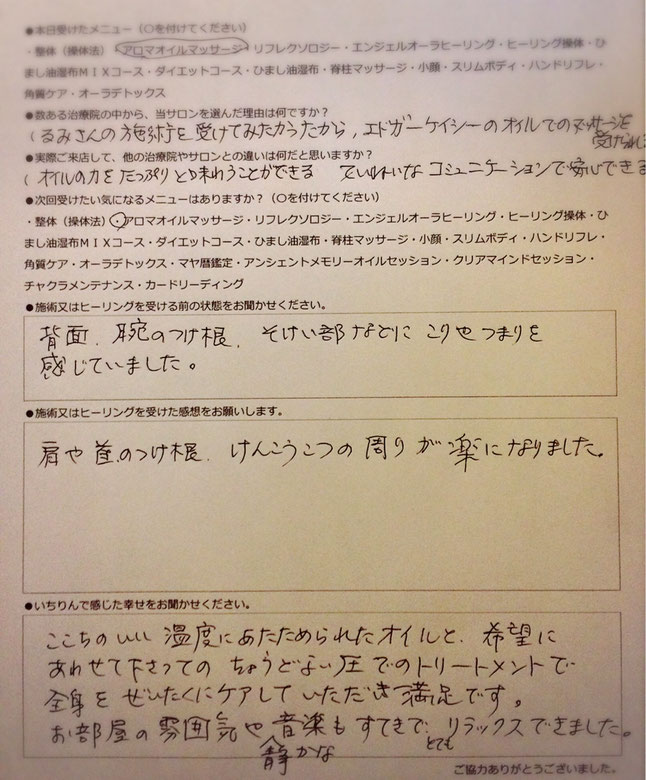 ●本日受けたメニュー(○を付けてください)
・整体(操体法)・アロマオイルマッサージ・リフレクソロジー・エンジェルオーラヒーリング・ヒーリング操体・ひ
まし油湿布MIXコース・ダイエットコース・ひまし油湿布・脊柱マッサージ・小顔・スリムボディ・ハンドリフレ・
角質ケア・オーラデトックス
●数ある治療院の中から、当サロンを選んだ理由は何ですか?
(るみさんの施術を受けてみたかったから,エドガーケイシーのオイルでのマッサージを
受けられる
●実際ご来店して、他の治療院やサロンとの違いは何だと思いますか?
(オイルの力をたっぷりと味わうことができる ていねいなコミュニケーションで安心できる
●次回受けたい気になるメニューはありますか?(○を付けてください)
・整体(操体法)・アロマオイルマッサージ・リフレクソロジー・エンジェルオーラヒーリング・ヒーリング操体・ひ
まし油湿布MIXコース・ダイエットコース・ひまし油湿布・脊柱マッサージ・小顔・スリムボディ・ハンドリフレ・
角質ケア・オーラデトックス・マヤ暦鑑定・アンシェントメモリーオイルセッション・クリアマインドセッション・
チャクラメンテナンス・カードリーディング
●施術又はヒーリングを受ける前の状態をお聞かせください。
背面、腕のつけ根、そけい部などにこりやつまりを
感じていました。
●施術又はヒーリングを受けた感想をお願いします。
肩や首のつけ根、けんこうこつの周りが楽になりました。
●いちりんで感じた幸せをお聞かせください。
ここちのいい温度にあたためられたオイルと、希望に
あわせて下さっての ちょうどよい圧でのトリートメントで
全身をぜいたくにケアしていただき満足です。
お部屋の雰囲気や静かな音楽もすてきで、とてもリラックスできました。
ご協力ありがとうございました。